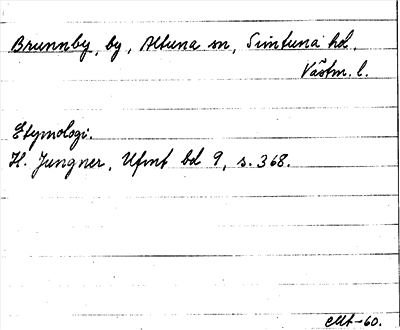 Brunnby, by, Altuna sn, Simtuna hd.
Västm. l.
Etymologi.
H. Jungner, Ufmt bd 9, s. 368.
-60.